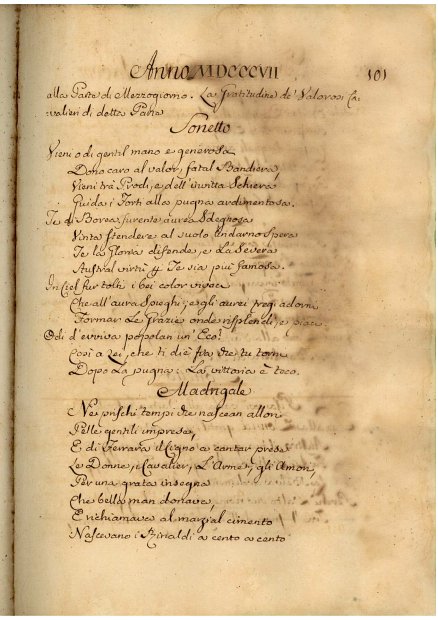 Anno MDCCCVII 101
alla Parte di Mezzogiorno. La Gratitudine de' Valorosi Ca-
valieri di detta Parte
Sonetto
Vieni o di gentil mano e generosa
Dono caro al valor, fatal Bandiera,
Vieni tra Prodi, e dell'invitta Schiera
Guida i Forti alla pugna ardimentosa.
Te di Borea furente aurea Sdegnosa
Vinta stendere al suolo indarno Spera
Te la Gloria difende, e La Severa
Austral virtù Te sia più famosa.
In Ciel fur tolti i bei color vivaci
Che all'aura Spieghi, e gli aurei fregi adorni
Formar Le Grazie onde risplendi, e piaci.
Odi d'evviva popolan un' Eco!
Così a Lei, che ti diè fia che tu torni
Dopo La pugna: La vittoria è teco.
Madrigale
Ne' prischi tempi che nascean allori
Pelle gentili imprese,
E di Ferrara il Cigno a cantar prese
Le Donne, i Cavalier, L'Arme, gli Amori,
Per una grata insegna
Che bella man donava,
E richiamava al marzial cimento
Nascevano i Rinaldi a cento a cento